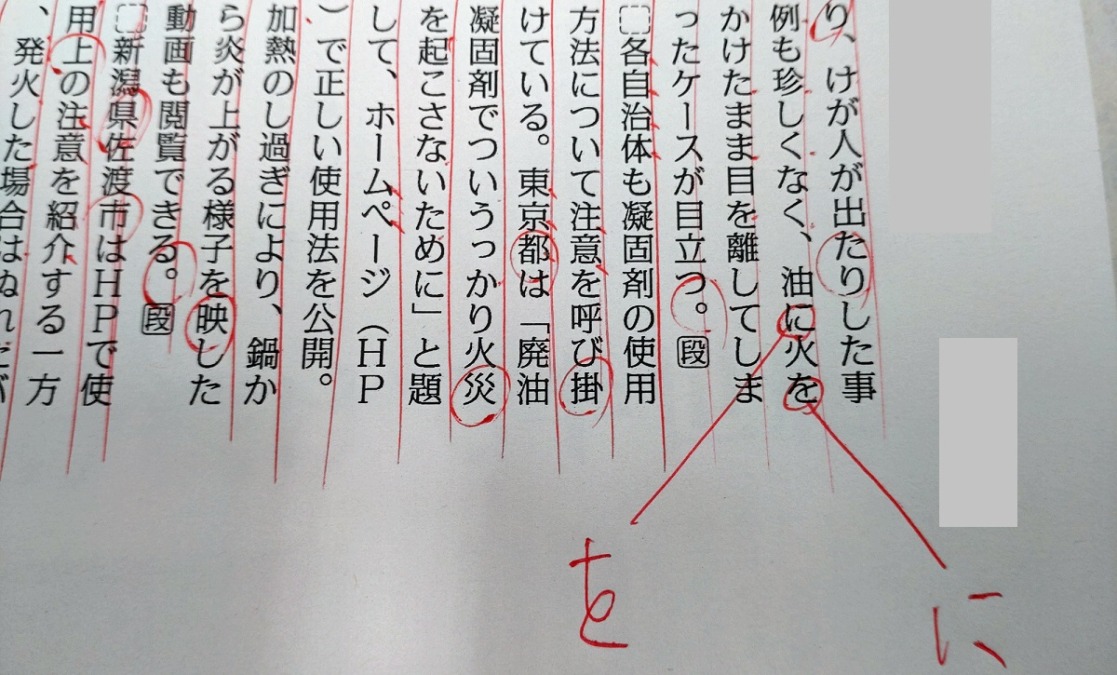 り、けが人が出たりした事
例も珍しくなく、油に火を
かけたまま目を離してしま
ったケースが目立つ。段
各自治体も凝固剤の使用
方法について注意を呼び掛
けている。東京都は「廃油
凝固剤でついうっかり火災
を起こさないために」と題
して、ホームページ（ＨＰ
）で正しい使用法を公開。
加熱のし過ぎにより、鍋か
ら炎が上がる様子を映した
動画も閲覧できる。段
新潟県佐渡市はＨＰで使
用上の注意を紹介する一方
、発火した場合はぬれ
を
に